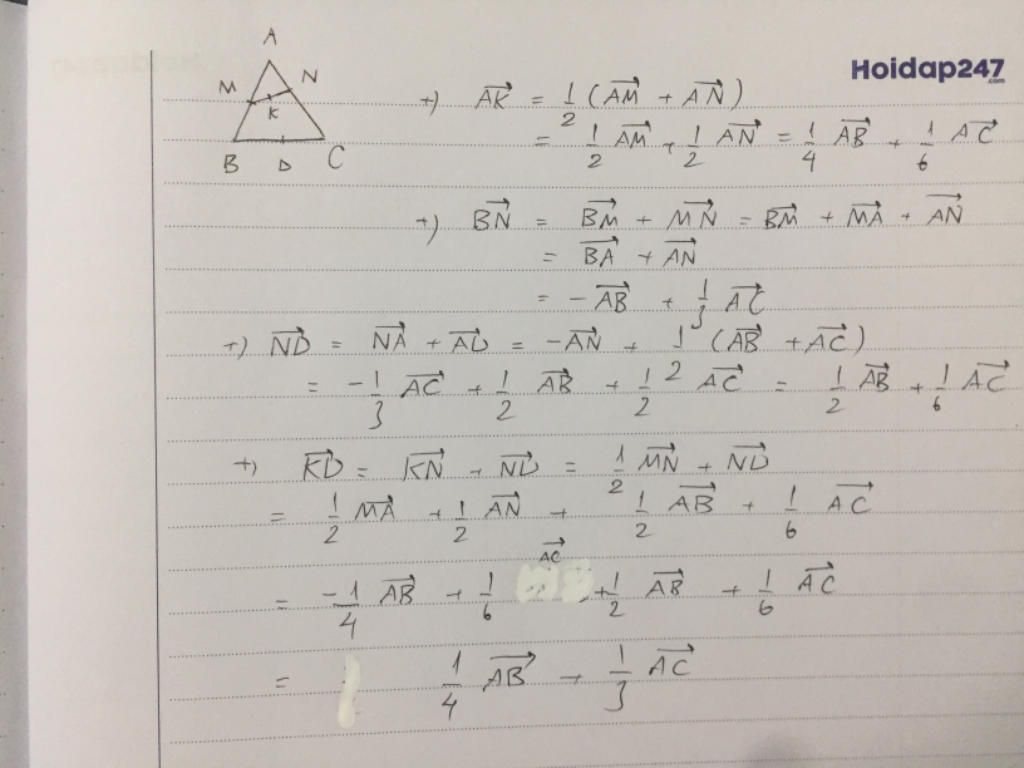 A
M N
K
B D C
Hoidap247
.com
+) $\overrightarrow{AK} = \frac{1}{2} (\overrightarrow{AM} + \overrightarrow{AN})$
$= \frac{1}{2} \overrightarrow{AM} + \frac{1}{2} \overrightarrow{AN} = \frac{1}{4} \overrightarrow{AB} + \frac{1}{6} \overrightarrow{AC}$
+) $\overrightarrow{BN} = \overrightarrow{BM} + \overrightarrow{MN} = \overrightarrow{BM} + \overrightarrow{MA} + \overrightarrow{AN}$
$= \overrightarrow{BA} + \overrightarrow{AN}$
$= -\overrightarrow{AB} + \frac{1}{3} \overrightarrow{AC}$
+) $\overrightarrow{ND} = \overrightarrow{NA} + \overrightarrow{AD} = -\overrightarrow{AN} + \frac{1}{2} (\overrightarrow{AB} + \overrightarrow{AC})$
$= -\frac{1}{3} \overrightarrow{AC} + \frac{1}{2} \overrightarrow{AB} + \frac{1}{2} \overrightarrow{AC} = \frac{1}{2} \overrightarrow{AB} + \frac{1}{6} \overrightarrow{AC}$
+) $\overrightarrow{KD} = \overrightarrow{KN} + \overrightarrow{ND} = \frac{1}{2} \overrightarrow{MN} + \overrightarrow{ND}$
$= \frac{1}{2} \overrightarrow{MA} + \frac{1}{2} \overrightarrow{AN} + \frac{1}{2} \overrightarrow{AB} + \frac{1}{6} \overrightarrow{AC}$
$= -\frac{1}{4} \overrightarrow{AB} + \frac{1}{6} \overrightarrow{AC} + \frac{1}{2} \overrightarrow{AB} + \frac{1}{6} \overrightarrow{AC}$
$= \frac{1}{4} \overrightarrow{AB} + \frac{1}{3} \overrightarrow{AC}$